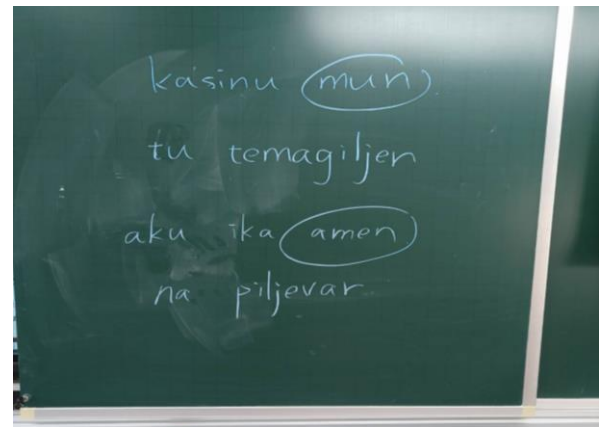 kasinu mun
tu temagiljen
aku ika amen
na piljevar